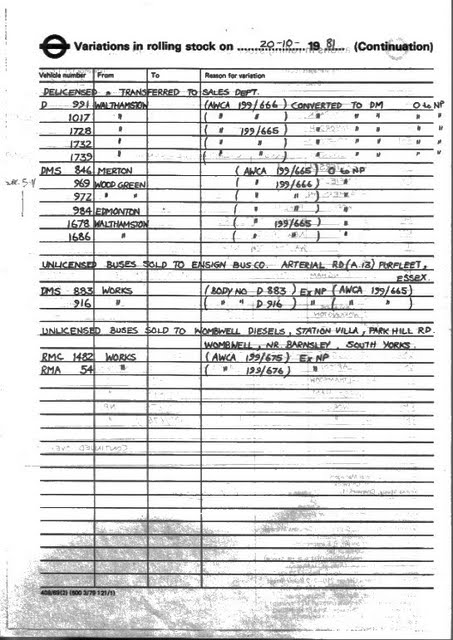 Variations in rolling stock on 20-10- 19 81 (Continuation)
Vehicle number From To Reason for variation
DELICENSED & TRANSFERRED TO SALES DEPT.
D 991 WALTHAMSTOW (AWCA 199/666) CONVERTED TO DM O to NP
1017 " ( " " ) " " " "
1728 " ( " 199/665) " " " "
1732 " ( " " ) " " " "
1739 " ( " " ) " " " "
DMS 846 MERTON (AWCA 199/665) O to NP
969 WOOD GREEN ( " 199/666) " "
972 " " ( " " ) " "
984 EDMONTON ( " " ) " "
1678 WALTHAMSTOW ( " 199/665) " "
1686 " ( " " ) " "
UNLICENSED BUSES SOLD TO ENSIGN BUS CO. ARTERIAL RD (A.13) PURFLEET,
ESSEX.
DMS 883 WORKS (BODY NO D 883) Ex NP (AWCA 199/665)
916 " ( " " D 916) " ( " " )
UNLICENSED BUSES SOLD TO WOMBWELL DIESELS, STATION VILLA, PARK HILL RD.
WOMBWELL, NR. BARNSLEY, SOUTH YORKS.
RMC 1482 WORKS (AWCA 199/675) Ex NP
RMA 54 " ( " 199/676) "